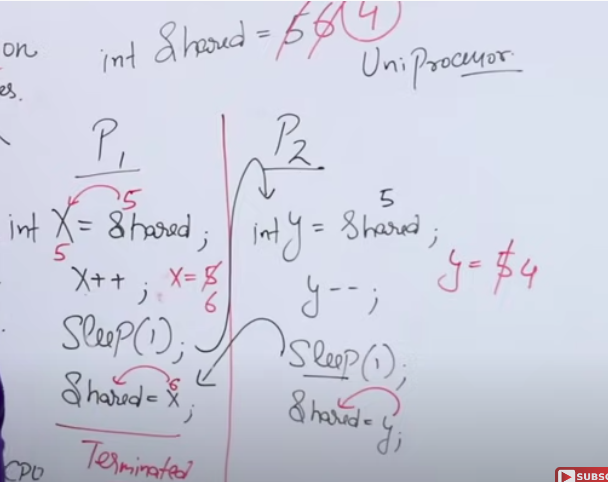 int Shared = 5 6 4
on
UniProcessor
es.
P1
5
int X = Shared;
5
X++; X = 5
6
Sleep(1);
6
Shared = X;
Terminated
CPU
P2
5
int y = Shared;
y = 5 4
y--;
Sleep(1);
Shared = y;
SUBSC